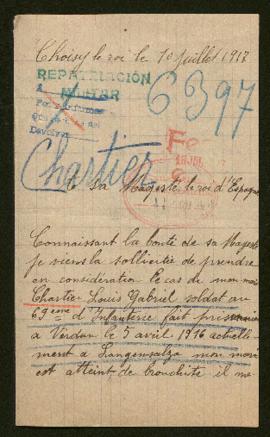 Choisy le roi le 10 juillet 1917
REPATRIACIÓN
MILITAR
6397
Fe
Chartier
A sa Majesté le roi d'Espagne
Connaissant la bonté de sa Majesté
je viens la sollicitée de prendre
en considération le cas de mon mari
Chartier Louis Gabriel soldat au
69ème d'Infanterie fait prisonnier
à Verdun le 5 avril 1916 actuelle-
ment à Langensalza mon mari
est atteint de bronchite il me